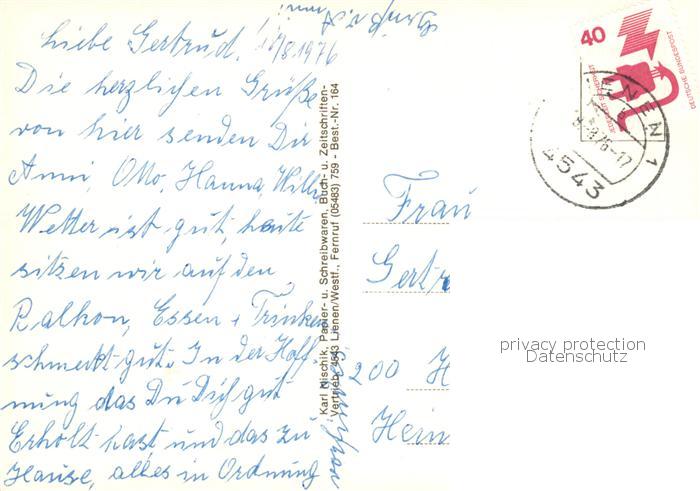 Liebe Gertrud! 7/8.1976
Die herzlichen Grüße
von hier senden Dir
Anni, Otto, Hanna, Willi
Wetter ist gut, heute
sitzen wir auf den
Balkon, Essen + Trinken
schmeckt gut. In der Hoff-
nung das Du Dich gut
Erholt hast, und das zu
Hause, alles in Ordnung
Karl Nischik, Papier- u. Schreibwaren, Buch- u. Zeitschriften-
Vertrieb, 4543 Lienen/Westf., Fernruf (05483) 759 - Best.-Nr. 164
40
DEUTSCHE BUNDESPOST
ENEN 1
8.76-17
4543
Frau
Gertr
200 H
Hein
privacy protection
Datenschutz